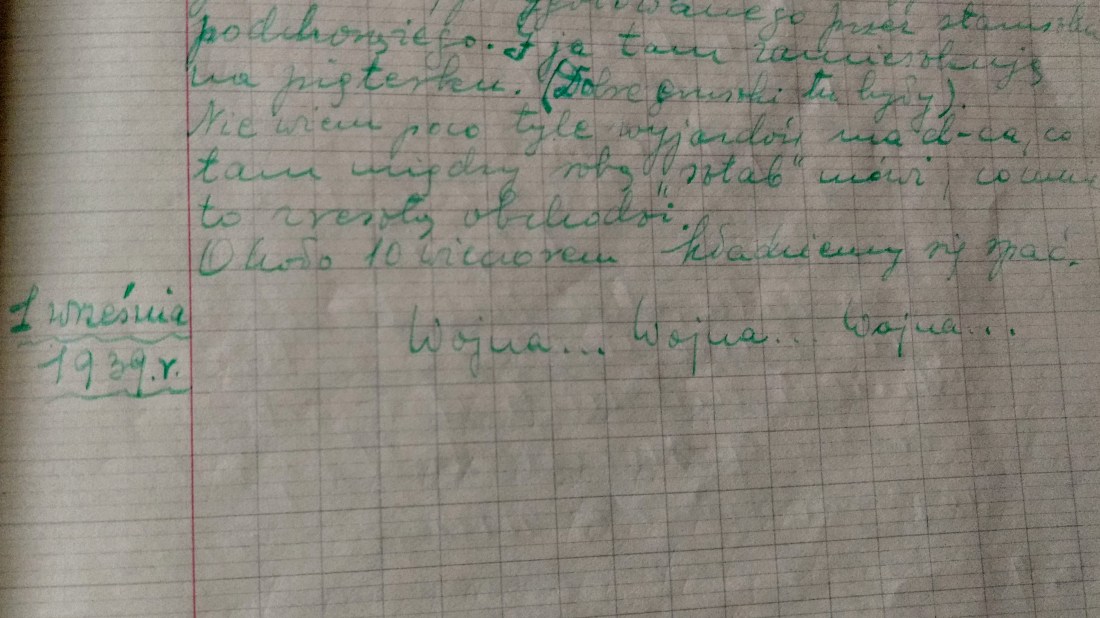 przez
podchorążego. I ja tam zamieszkuję
na pięterku. (Dobre gruszki tu były).
Nie wiem poco tyle wyjazdów ma d-ca, co
tam między sobą "sztab" mówi, co mnie
to zresztą obchodzi.
Około 10 wieczorem kładziemy się spać.
1 września
1939.r.
Wojna... Wojna... Wojna...